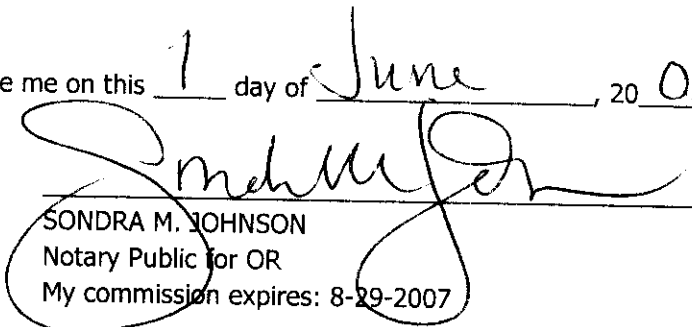 e me on this 1 day of June, 20 0
SONDRA M. JOHNSON
Notary Public for OR
My commission expires: 8-29-2007